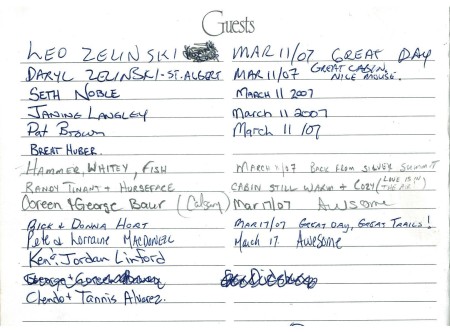 Guests
LEO ZELINSKI MAR 11/07 GREAT DAY
DARYL ZELINSKI-ST.ALBERT MAR 11/07 GREAT CABIN, NICE MOUSE.
SETH NOBLE MARCH 11 2007
JANINE LANGLEY March 11 2007
Pat Brown March 11 /07
BRENT HUBER.
HAMMER, WHITEY, FISH MARCH 11/07 BACK FROM SILVER SUMMIT
RANDY TINANT + HORSEFACE CABIN STILL WARM + COZY (LOVE IS IN THE AIR)
Doreen & George Baur (Calgary) Mar 17/07 Awsome
RICK & DONNA HORT MAR 17/07 GREAT DAY, GREAT TRAILS!
Pete & Lorraine MACDONELL March 17. Awesome
Ken & Jordan Linford
Chendo + Tannis Alvarez.